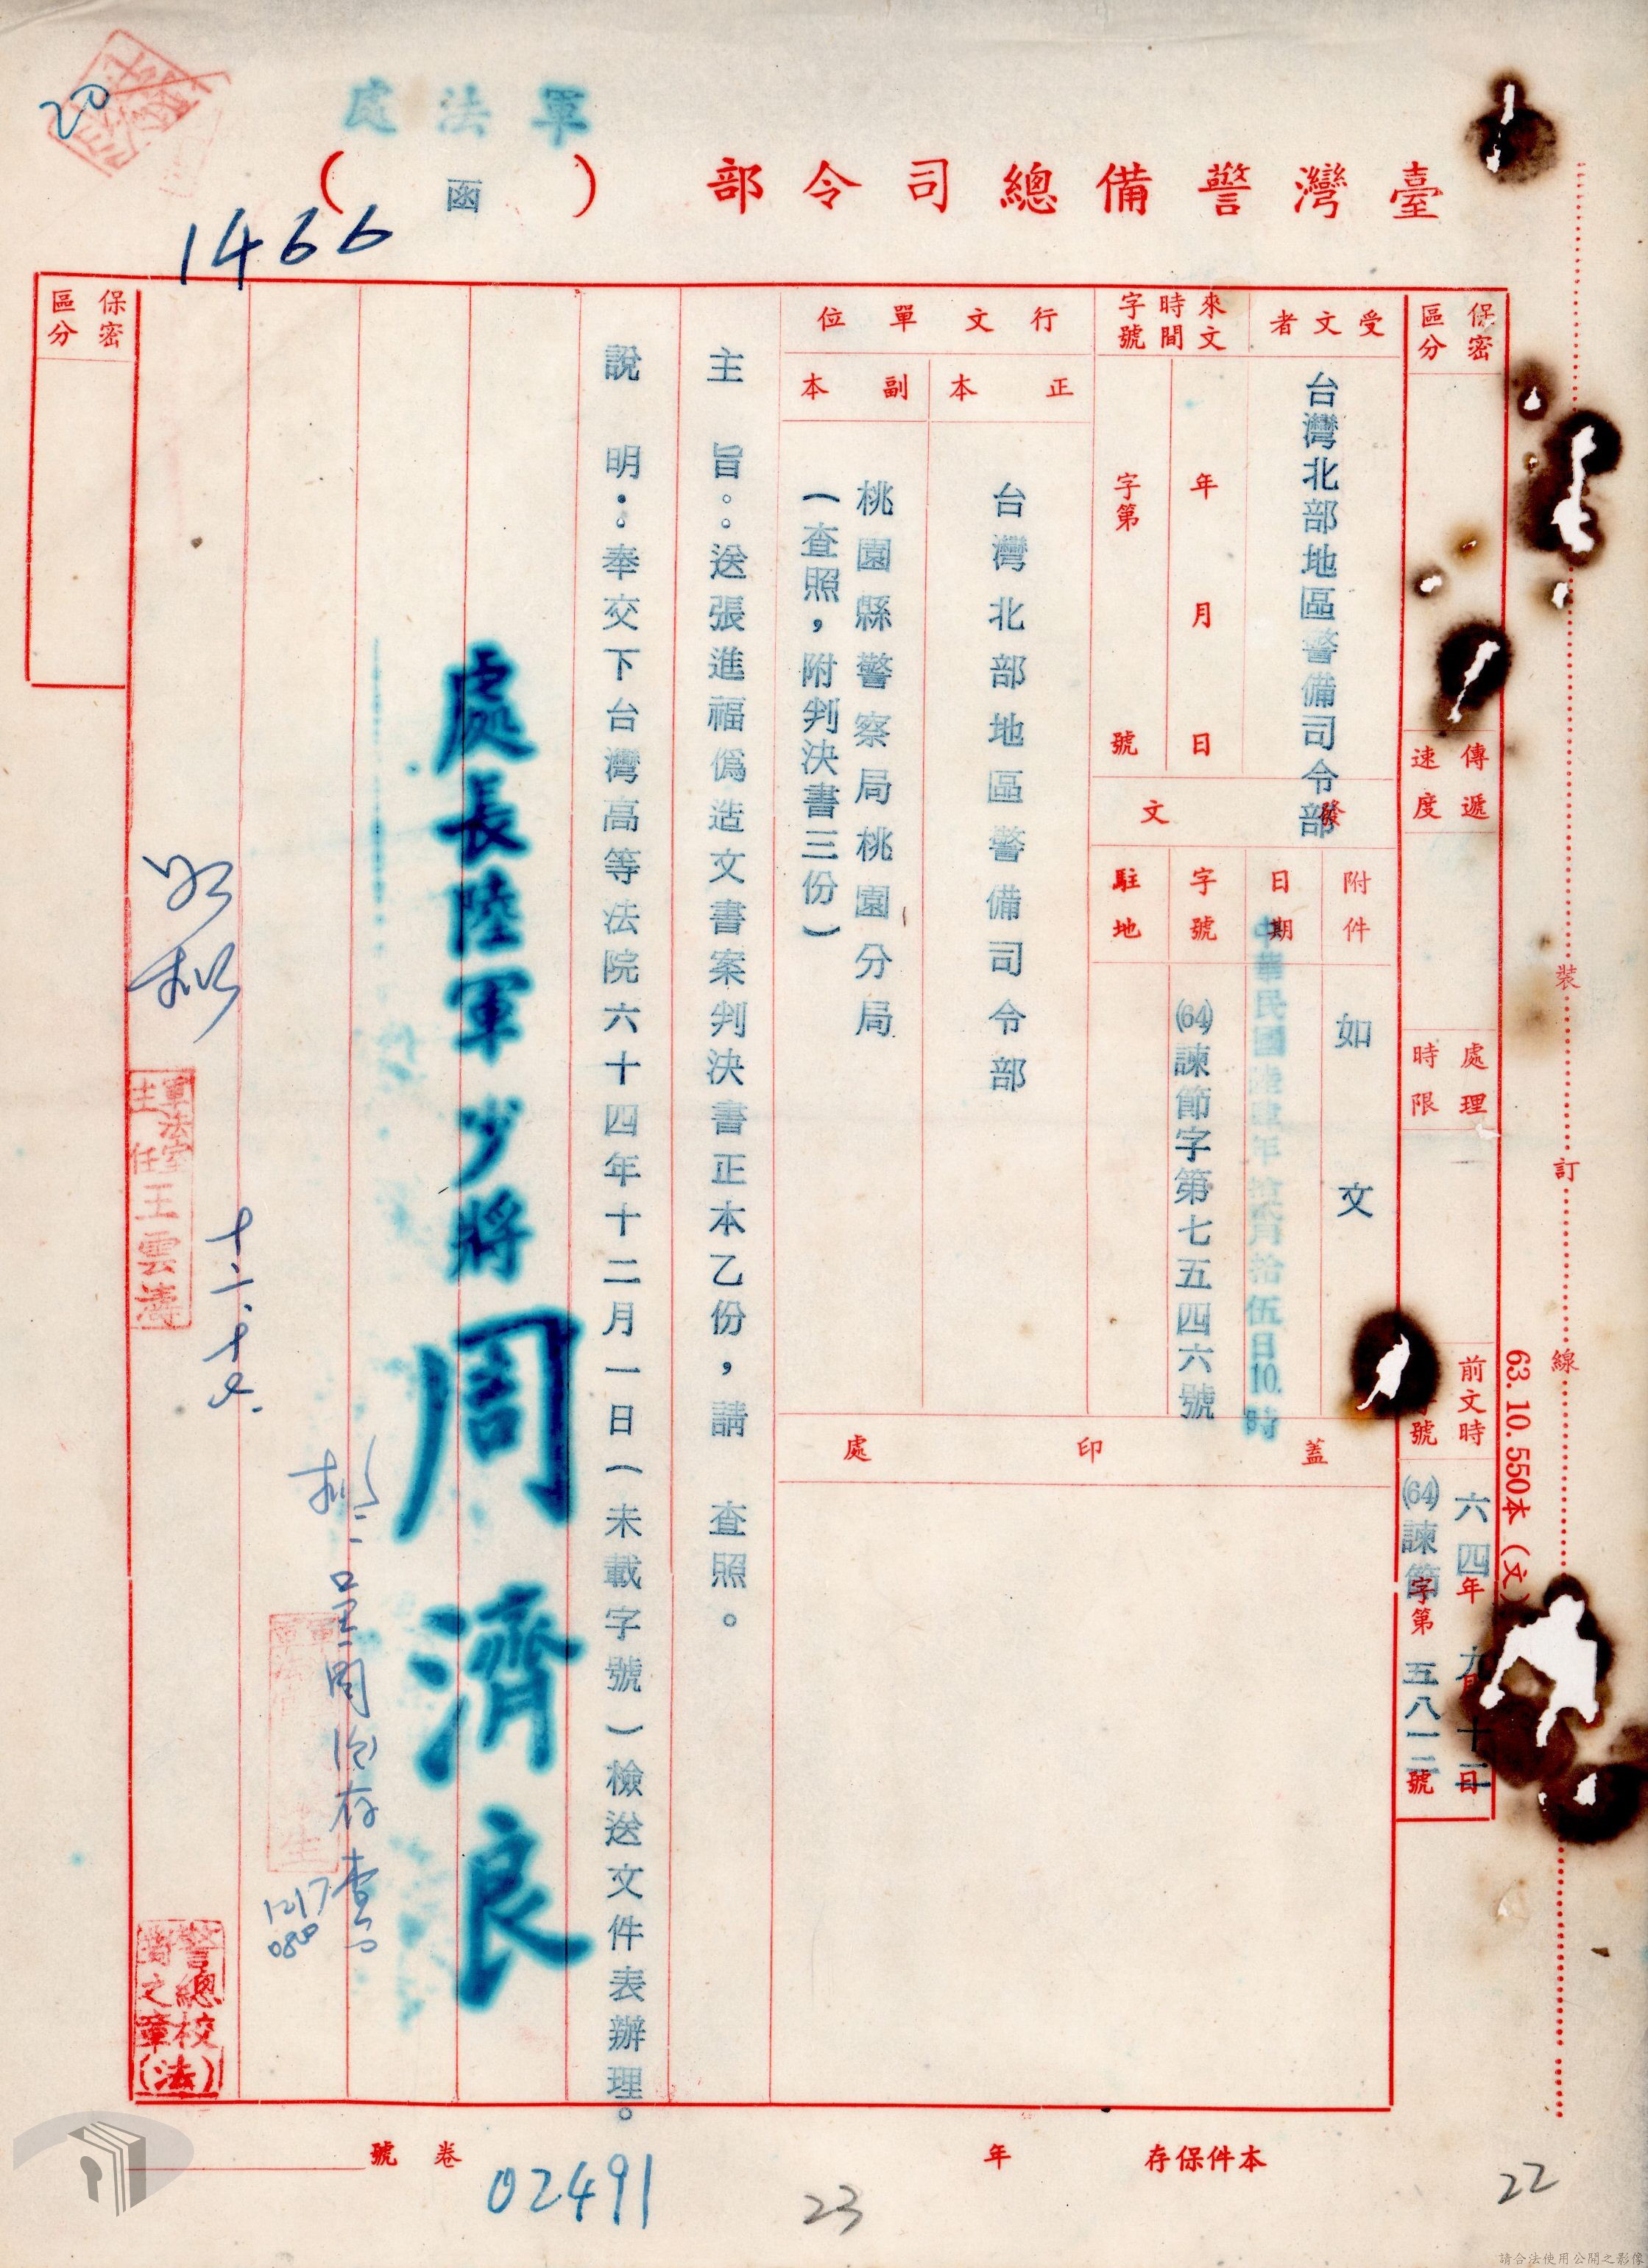 軍法處
臺灣警備總司令部（函）
20
1466
保密區分
傳遞速度
處理時限
前文時
號
六四年九月十二日
(64)諫節字第五八一二號
受文者
台灣北部地區警備司令部
來文時間字號
年月日
字第號
發文
附件
如文
日期
中華民國陸肆年拾貳月拾伍日10.時
字號
(64)諫節字第七五四六號
駐地
行文單位
正本
台灣北部地區警備司令部
副本
桃園縣警察局桃園分局
（查照，附判決書三份）
蓋印處
主旨：送張進福偽造文書案判決書正本乙份，請　查照。
說明：奉交下台灣高等法院六十四年十二月一日（未載字號）檢送文件表辦理。
處長陸軍少將周濟良
擬：呈閱後存查
1217
0800
如擬
軍法室主任王雲濤
警總校對之章(法)
保密區分
裝
訂
線
63.10.550本（文）
本件保存　年
卷號
02491
23
22
請合法使用公開之影像